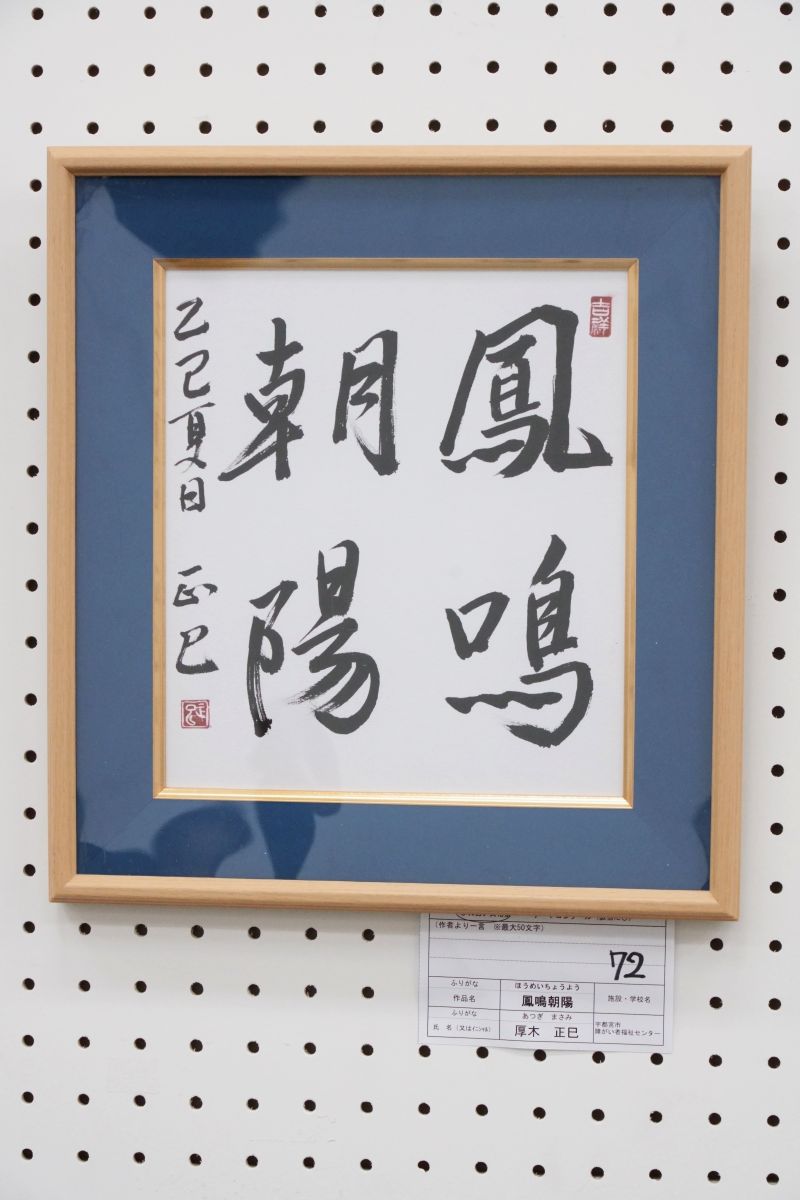 吉祥
鳳鳴
朝陽
乙巳夏日 正巳
(作者より一言 ※最大50文字)
72
ふりがな ほうめいちょうよう
作品名 鳳鳴朝陽 施設・学校名
ふりがな あつぎ まさみ
氏名(又はイニシャル) 厚木 正巳 宇都宮市
障がい者福祉センター